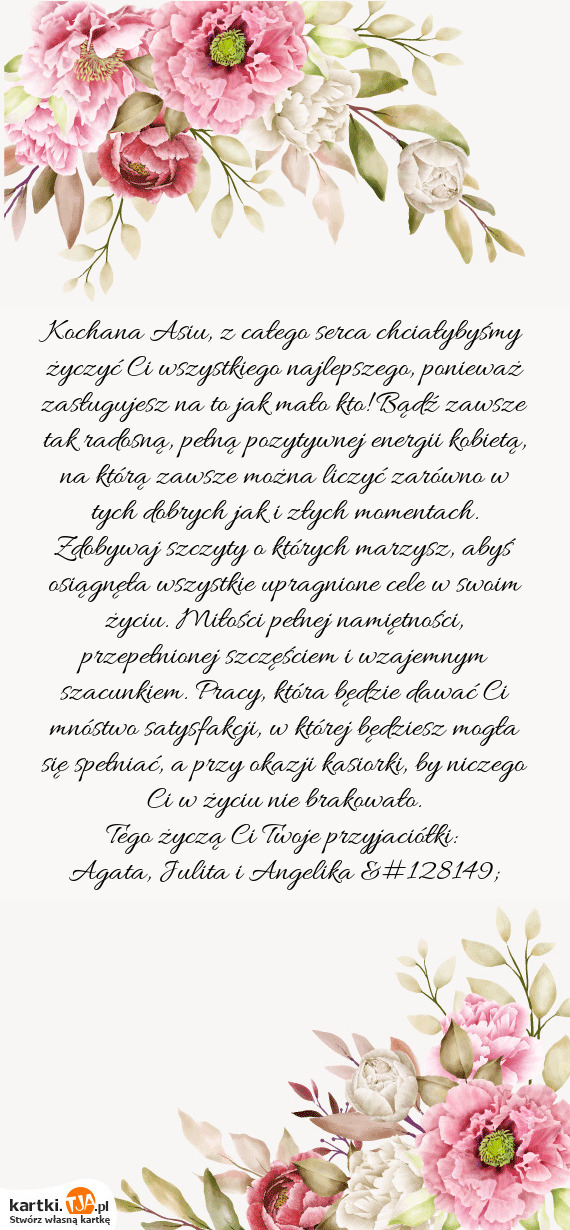 Kochana Asiu, z całego serca chciałybyśmy
życzyć Ci wszystkiego najlepszego, ponieważ
zasługujesz na to jak mało kto! Bądź zawsze
tak radosną, pełną pozytywnej energii kobietą,
na którą zawsze można liczyć zarówno w
tych dobrych jak i złych momentach.
Zdobywaj szczyty o których marzysz, abyś
osiągnęła wszystkie upragnione cele w swoim
życiu. Miłości pełnej namiętności,
przepełnionej szczęściem i wzajemnym
szacunkiem. Pracy, która będzie dawać Ci
mnóstwo satysfakcji, w której będziesz mogła
się spełniać, a przy okazji kasiorki, by niczego
Ci w życiu nie brakowało.
Tego życzą Ci Twoje przyjaciółki:
Agata, Julita i Angelika &#128149;
kartki.TJA.pl
Stwórz własną kartkę